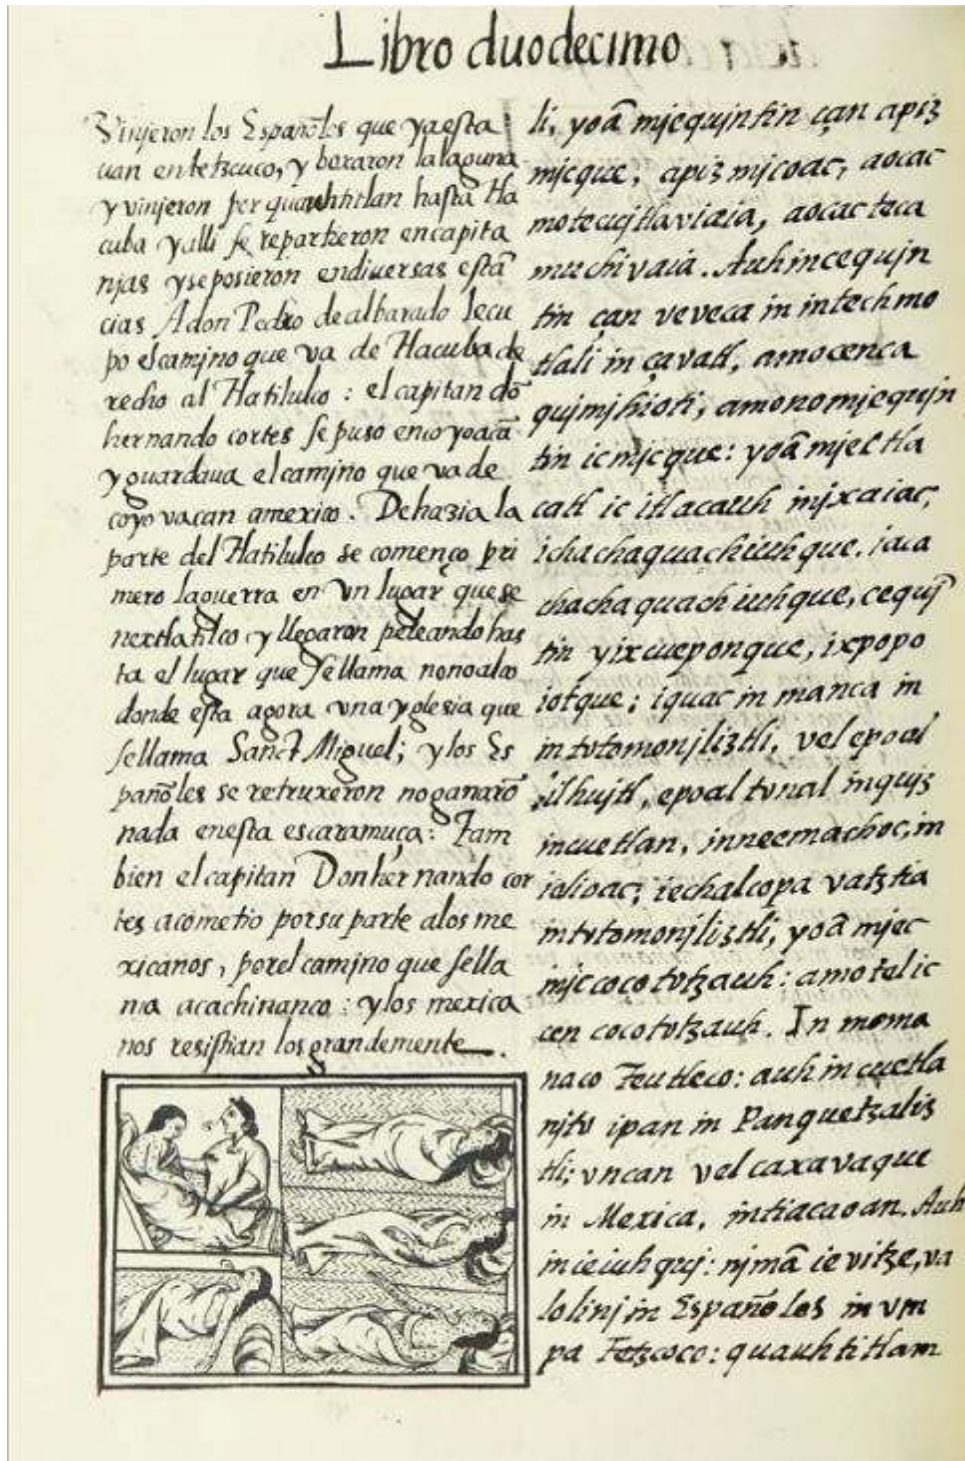 Libro duodecimo
Vinjeron los Españoles que ya esta
uan en tetzcuco, y boxaron la laguna
y vinjeron por quauhtitlan hasta tla
cuba y alli se repartieron en capita
njas y se posieron en diuersas estã
cias A don Pedro de albarado le cu
po el camino que va de tlacuba de
recho al tlatilulco : el capitan dõ
hernando cortes se puso en coyoacã
y guardaua el camino que va de
coyovacan a mexico. De hazia la
parte del tlatilulco se començo pri
mero la guerra en vn lugar que se
nextlatilco y llegaron peleando has
ta el lugar que se llama nonoalco
donde esta agora vna yglesia que
se llama Sanct Miguel; y los Es
pañoles se retruxeron no ganarõ
nada en esta escaramuça : Tam
bien el capitan Don hernando cor
tes acometio por su parte a los me
xicanos, por el camjno que se lla
ma acachinanco : y los mexica
nos resistian los grandemente.
li, yoã mjequjntin çan apiz
mjcque, apizmjcoac, aocac
motecujtlaviaia, aocac teca
muchivaia. Auh in cequjn
tin çan veveca in intech mo
tlali in çavatl, amo cenca
qujmjhioti, amo no mjequjn
tin ic mjcque: yoã mjec tla
catl ic itlacauh injxaiac,
ichachaquachiuhque, iaca
chachaquachiuhque, cequj̃
tin yixcueponque, ixpopo
iotque; iquac in manca in
in totomonjliztli, vel epoal
ilhujtl, epoal tonal in quiz
in cuetlan, in neemachoc, in
iolioac; ie chalcopa vatztia
in totomonjliztli, yoã mjec
injc cocototzauh: amo tel ic
cen cocototzauh. In moma
naco Teutleco: auh in cuetla
njto ipan in Panquetzaliz
tli; vncan vel caxavaque
in Mexica, in tiacaoan. Auh
in ie iuhquj: njmã ie vitze, va
lolinj in Españoles in vm
pa Tetzcoco: quauhtitlam